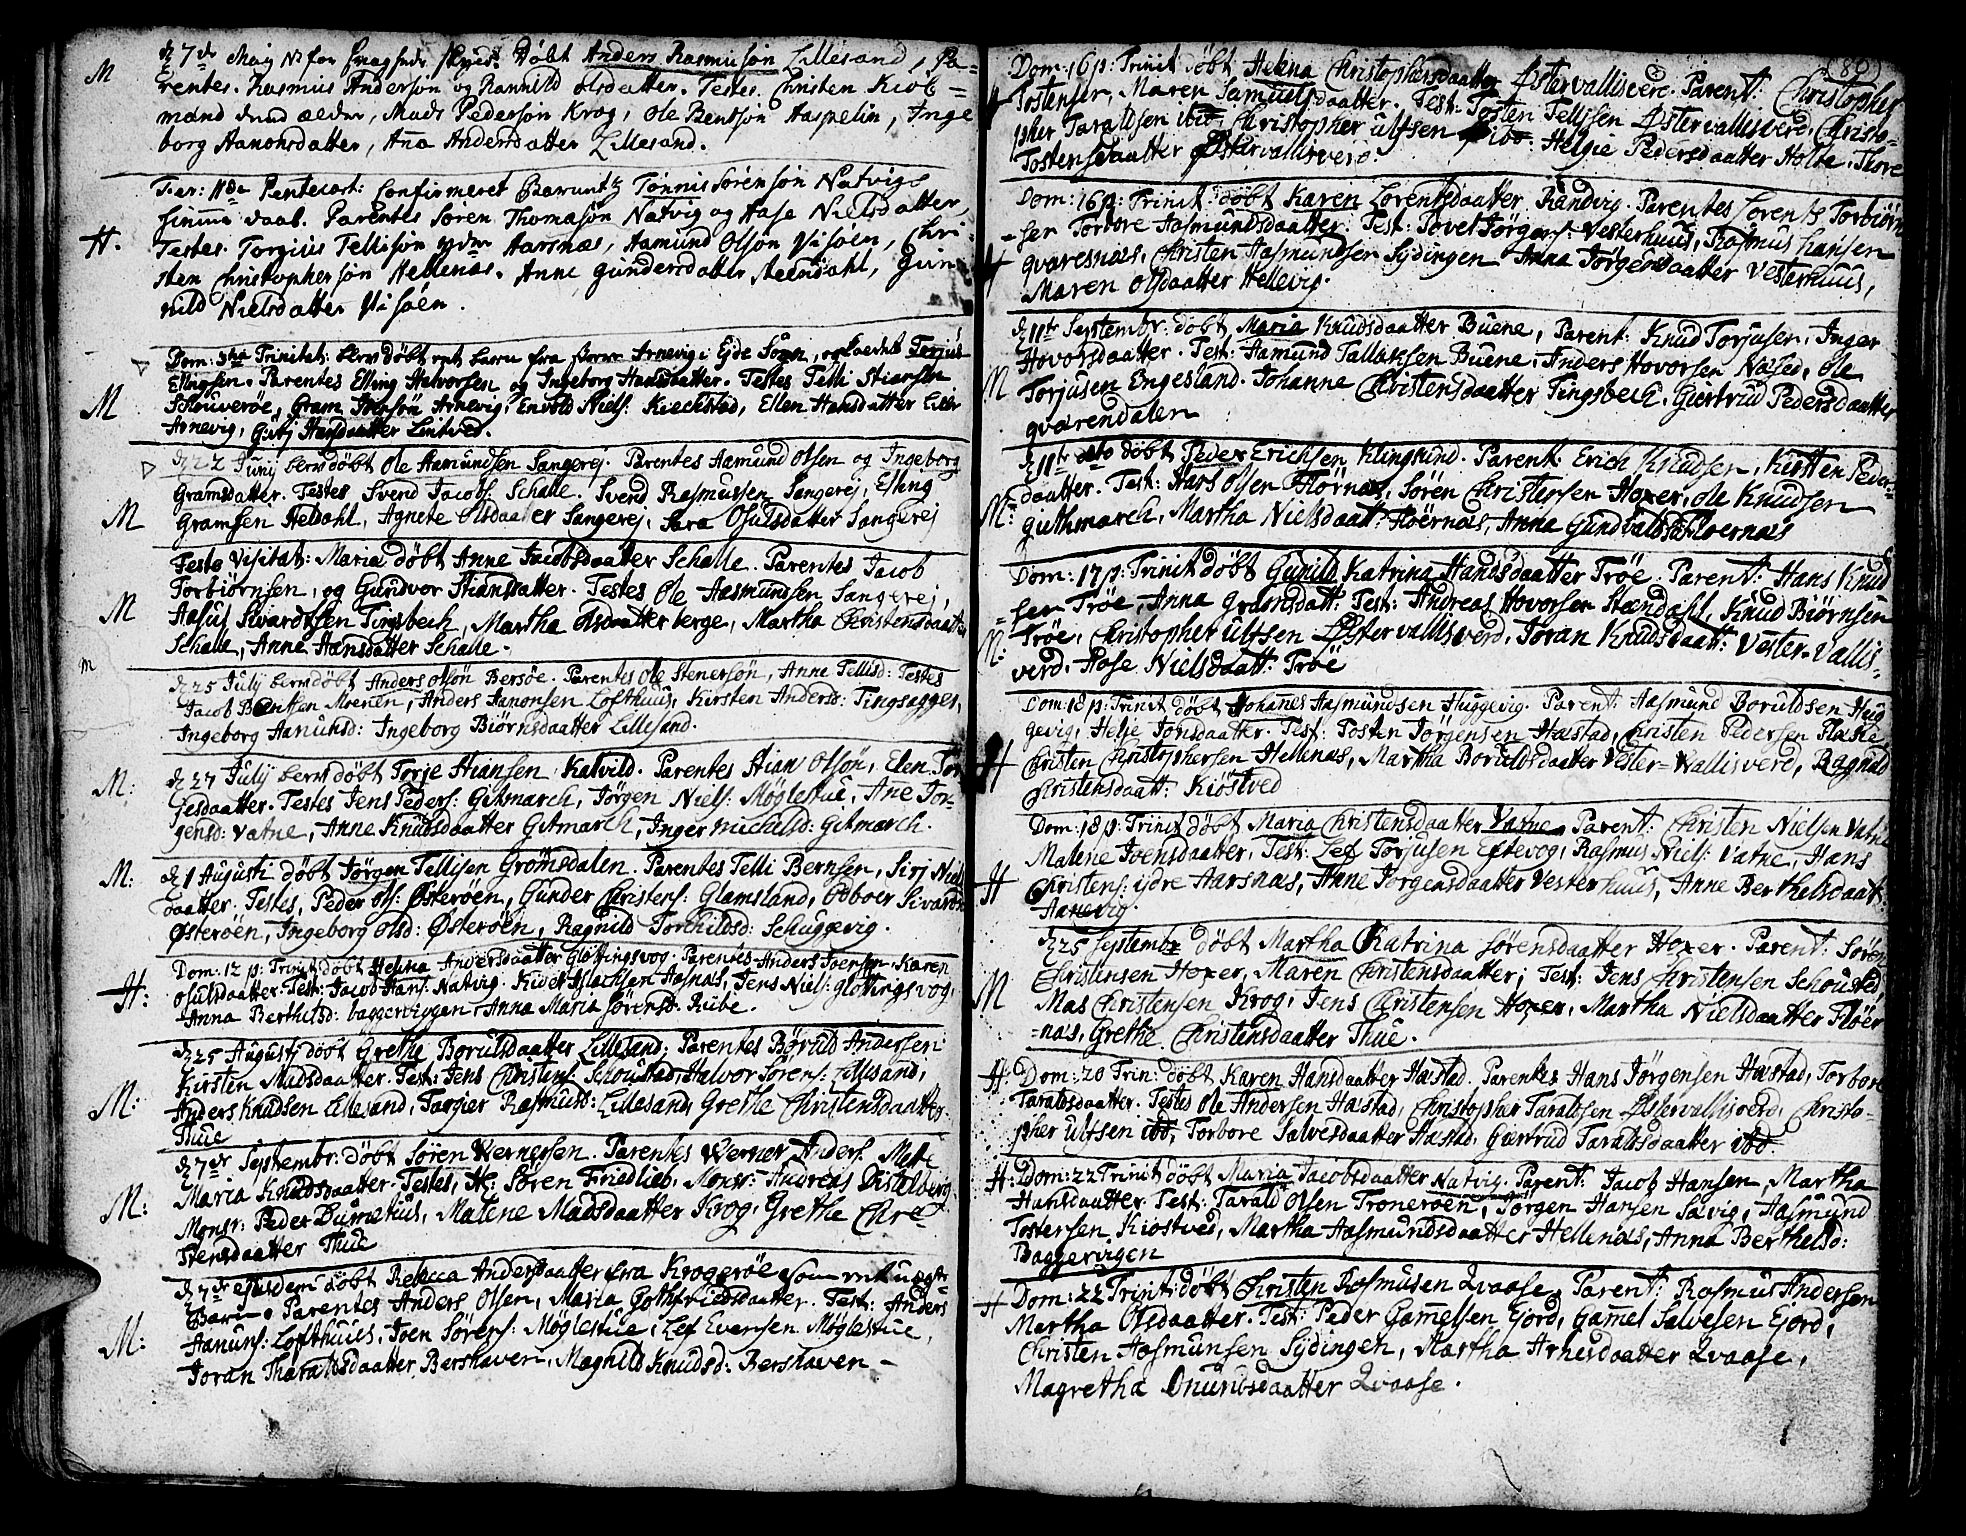 M
d 7de Maij Döbt Anders Rasmusön Lillesand, Pa-
rentes. Rasmus Andersön og Rannild olsdatter. Testes. Christen Kiöb-
mand Mads Pedersön Krog, Ole Bendsön Aaspelin, Inge
borg Aanonsdatter, Ana Andersdatter Lillesand.
H.
Fer: 11da Pentecost: Confirmeret Tönnis Sörensön Natvigs
daab. Parentes Sören Thomasön Natvig og Aase Nielsdatter,
Testes. Torgius Tellisön Aarsnæs, Aamund Olsön Visöen, Chri-
sten Christophersön Hellenæs. Anne Gundersdatter Steendahl, Gun-
nild Nielsdatter Visöen.
M
Dom: 3tia Trinitat: fra Arnevig i Eide Sogn, Torjus
Ellingsen. Parentes Elling Halvorsen og Ingeborg Hansdatter. Testes Telli Stiansen
Schouveröe, Gram Arnevig, Envold Niels: Kieckstad, Ellen Hansdatter
Arnevig, Hansdatter Lintved.
M
d 22 Junij döbt Ole Aamundsen Sangerej. Parentes Aamund Olsen og Ingeborg
Gramsdatter. Testes Svend Jacobs: Schalle. Svend Rasmussen Sangerej, Elling
Gramsen Heldahl, Agnete Olsdaatter Sangerej, Sara Osulsdatter Sangerej
M
Festo Visitat: Maria döbt Anne Jacobsdaatter Schalle. Parentes Jacob
Torbiörnsen, og Gundvor Stiansdatter. Testes Ole Aasmundsen Sangerej,
Aasul Sivardtsen Tingsbech, Martha Olsdaatter berge, Martha Christensdaatter
Schalle, Anne Hansdatter Schalle.
m
d 25 July döbt Anders Olsön Bersöe. Parentes Ole Stenersön, Anna Tellisd: Testes
Jacob Moenen, Anders Aanonsen Lofthuus, Kirsten Anders: Tingsagger,
Ingeborg Aanunsd: Ingeborg Biörnsdaatter Lillesand.
M:
d 27 July döbt Torje Stiansen Katvild. Parentes Stian Olsön, Elen Tor
jesdaatter. Testes Jens Peders: Gitmarch, Jörgen Niels: Möglestue, Ane Jor-
gensd: Vatne, Anne Knudsdaatter Gitmarch, Inger Michelsd: Gitmarch.
M:
d 1 Augusti döbt Jörgen Tellisen Grömsdalen. Parentes Telli Bernsen, Sirj Niels
daatter. Testes, Peder Ols: Österöen, Gunder Christens: Glamsland, Osboer Sivards
Österöen, Ingeborg Olsd: Österöen, Ragnild Torchildsd: Schuggevig.
H:
Dom: 12 p: Trinit döbt Helena Andersdaatter Glottingsvog. Parentes Anders Joensen Karen
Osulsdaatter. Test: Jacob Hans: Natvig. Hasnæs, Jens Niels: glottingsvog,
Anna Berthelsd: baggerviggen Anna Maria Sörensd: Rube.
M:
d 25 Augustj döbt Grethe Borulsdaatter Lillesand; Parentes Börud Andersen
Kirsten Madsdaatter. Test: Jens Christens: Schoustad, Halvor Sörens: Lillesand,
Anders Knudsen Lillesand, Taagier Rasmusd: Lillesand, Grethe Christensdaatter
Thue
M:
d 7de Septembr: döbt Sören Wernersen. Parentes Werner Anders: Mette
Maria Knudsdaatter. Testes, Hr: Sören Friedlieb, Monsr: Andreas Distelberg
Monsr: Peder Dumetius, Malene Madsdaatter Krog, Grethe Chri
stensdaatter Thue
M:
d 7de ejusdem döbt Rebecca Andersdaatter fra Krogeröe
Barn. Parentes Anders Olsen, Maria Gothfriedsdaatter. Test: Anders
Aanuns: Lofthuus, Joen Sörens: Möglestue, Lef Evensen Möglestue,
Joran Tharaldsdaatter Bershaven, Magnild Knudsd: Bershaven
(80)
H
Dom: 16 p: Trinit döbt Helena Christophersdaatter Östervallisvere. Parent: Christopher
Tostensen, Maren Samuelsdaatter. Test: Tosten Tellisen Östervallisverd, Christo-
pher Taraldsen ibid, Christopher Ulfsen ibid. Helgie Pedersdaatter Holte. Thore
Tostensdaatter Östervallisverd.
H
Dom: 16 p: Trinit döbt Karen Lorentsdaatter Randvig. Parentes Lorents Torbiörn
sen Torbore Aasmundsdaatter. Test: Tovel Jörgens: Vesterhuus, Rasmus Hansen
qvaresnæs, Christen Aasmundsen Sydingen Anna Jörgensdaatter Vesterhuus,
Maren Olsdaatter Hellevig.
M
d 11te Septembr: döbt Maria Knudsdaatter Buene, Parent: Knud Torjusen, Inger
Hovorsdaatter. Test: Aamund Tallaksen Buene, Anders Hovorsen Nased, Ole
Torjusen Engesland. Johanne Christensdaatter Tingsbech. Giertrud Pedersdaatter
qvarendalen
M:
d 11te dito döbt Peder Erichsen Klingsund. Parent Erich Knudsen, Kirsten Peders-
daatter. Test: Hans Olsen Flörnæs, Sören Christensen Hoxer, Ole Knudsen
giethmarch, Martha Nielsdaatt: Flöernæs, Anna Gundvaldsd: Floernæs
M:
Dom: 17 p: Trinit döbt Gunild Katrina Handsdaatter Tröe. Parent: Hans Knud
sen Tröe, Anna gramsdatt: Test: Andreas Hovorsen Stændahl, Knud Biörnsen
Tröe, Christopher Ulfsen Östervallisverd, Joran Knudsdaatt: Vester-Vallis-
verd. Aase Nielsdaatt: Tröe
H
Dom: 18 p: Trinit döbt Johanes Aasmundsen Huggevig. Parent: Aasmund Borulsen Hug
gevig, Helje Jonsdaatter. Test: Tosten Jörgensen Hæstad, Christen Pedersen
Christen Christophersen Hellenæs, Martha Borulsdaatter Vester=Wallisverd, Ragnild
Christensdaatt: Kiöstved
H
Dom: 18 p: Trinit döbt Maria Christensdaatter Vatne. Parent: Christen Nielsen Vatne
Malene Joensdaatter, Test: Lef Torjusen Eftevog, Rasmus Niels: Vatne, Hans
Christens: ijdre Aarsnæs, Anne Jörgensdaatter Vesterhuus, Anne Berthelsdaatt:
Aanevig.
M
d 25 Septembr döbt Martha Katrina Sörensdaatter Hoxer. Parent: Sören
Christensen Hoxer, Maren Christensdaatter; Test: Jens Christensen Schousted,
Mas Christensen Krog, Jens Christensen Hoxer, Martha Nielsdaatter Flöer
=næs, Grethe Christensdaatter Thue.
H
Dom: 20 Trin: döbt Karen Hansdaatter Hæstad. Parentes Hans Jörgensen Hæstad, Torbore
Taraldsdaatter. Testes Ole Andersen Hæstad, Christopher Taraldsen Östervallisverd, Christo-
pher Ulfsen ibd, Torbore Salvesdaatter Hæstad, Giertrud Taraldsdaatter ibd.
H:
Dom: 22 Trinit döbt Maria Jacobsdaatter Natvig. Parent: Jacob Hansen, Martha
Hansdaatter. Test: Tarald Olsen Troneröen, Jörgen Hansen Salvig, Aasmund
Tostensen Kiöstved, Martha Aasmundsdaatter Hellenæs, Anna Berthelsd:
Baggervigen
H
Dom: 22 Trinit: döbt Christen Rasmusen Qvaase, Parent: Rasmus Andersen
Martha Olsdaatter. Test: Peder Gamelsen Ejord, Gamel Salvesen Ejord,
Christen Aasmunsen Sydingen, Martha Arnesdaatter Qvaase,
Magretha Onundsdaatter Qvaase.